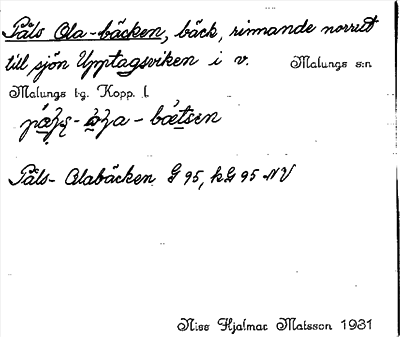 Påls Ola-bäcken, bäck, rinnande norrut
till sjön Upptagsviken i v. Malungs s:n
Malungs t:g. Kopp. l.
Påls-Olabäcken G 95, kG 95 NV
Nils Hjalmar Matsson 1931